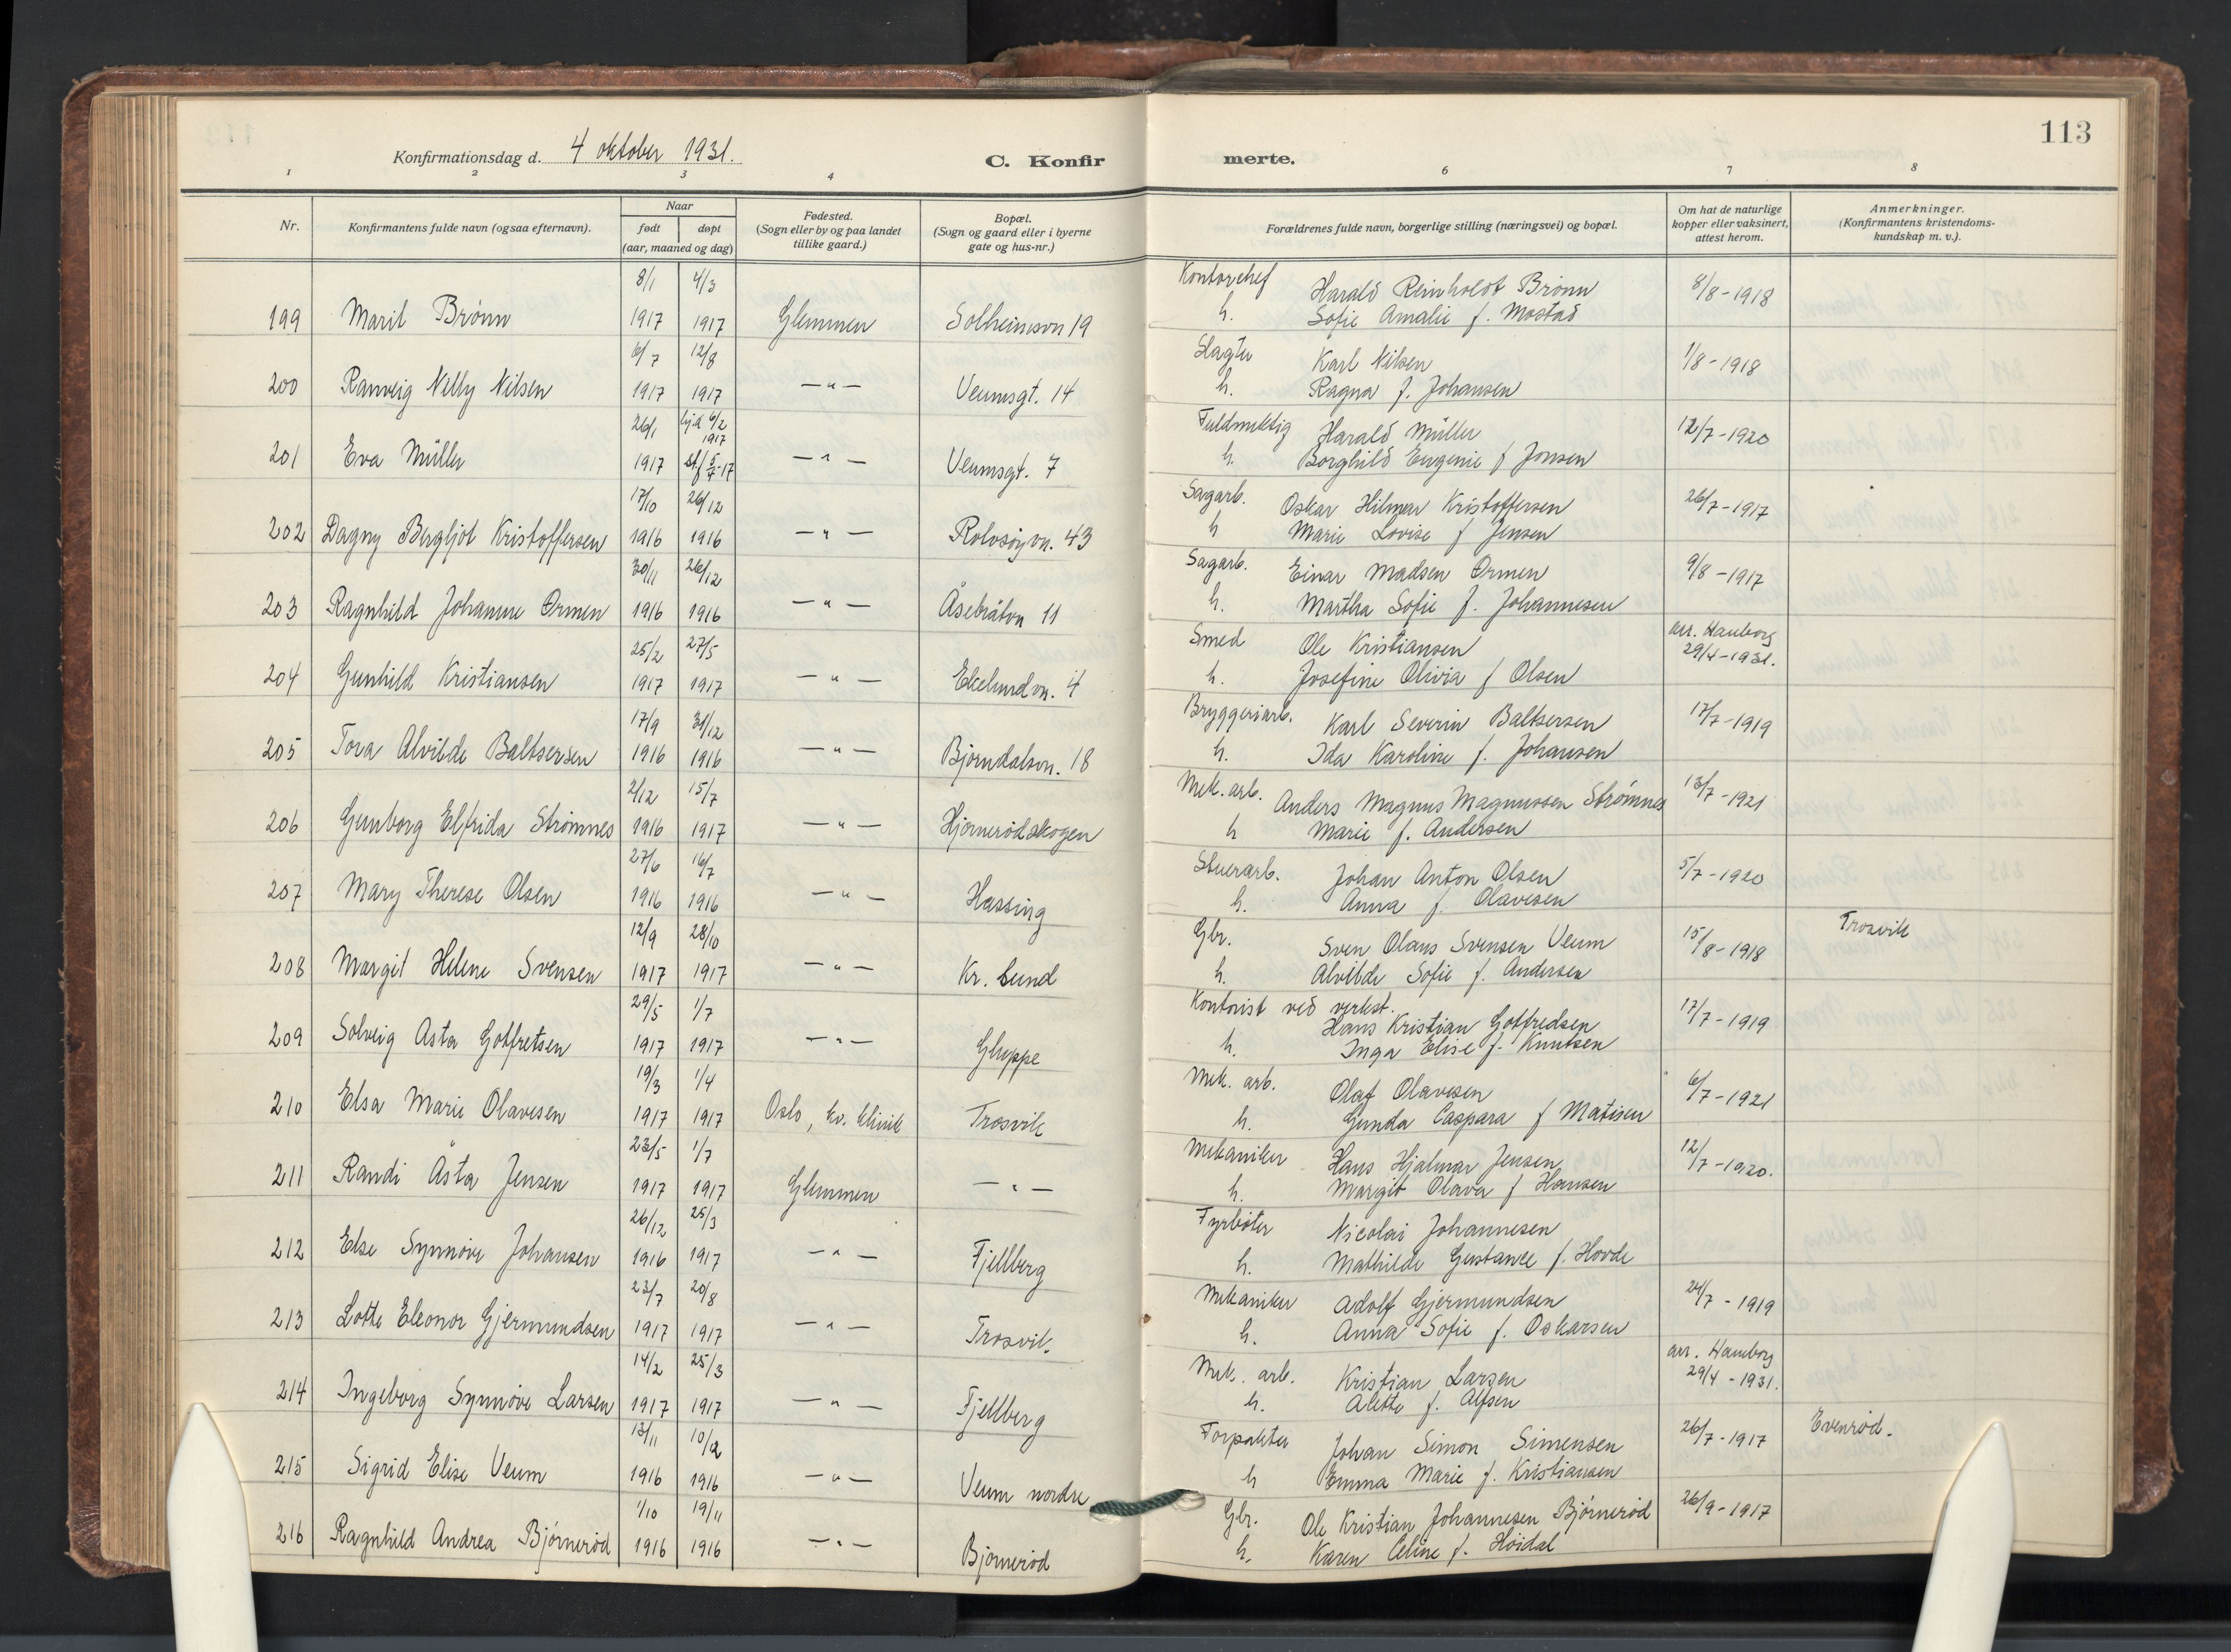 113
Konfirmationsdag d. 4 oktober 1931.
C. Konfirmerte.
1 2 3 4 6 7 8
Nr.
Konfirmantens fulde navn (ogsaa efternavn).
Naar
født døpt
(aar, maaned og dag)
Fødested.
(Sogn eller by og paa landet
tillike gaard.)
Bopæl.
(Sogn og gaard eller i byerne
gate og hus-nr.)
Forældrenes fulde navn, borgerlige stilling (næringsvei) og bopæl.
Om hat de naturlige
kopper eller vaksinert,
attest herom.
Anmerkninger.
(Konfirmantens kristendoms-
kundskap m. v.).
8/1 4/3 Kontorchef Harald Reinholdt Brønn 8/8-1918
199 Marit Brønn 1917 1917 Glemmen Solheimsvn 19 h. Sofie Amalie f. Mostad
6/7 12/8 Slagter Karl Nilsen 1/8-1918
200 Ranveig Nelly Nilsen 1917 1917 —"— Veumsgt. 14 h. Ragna f. Johansen
26/1 hj.d 6/2 1917 Fuldmektig Harald Müller 12/7-1920
201 Eva Müller 1917 st.f 5/4-17 —"— Veumsgt. 7 h. Borghild Eugenie f Jonsen
17/10 26/12 Sagarb. Oskar Hilmar Kristoffersen 26/7-1917
202 Dagny Bergljot Kristoffersen 1916 1916 —"— Rolvsøyvn. 43 h Marie Lovise f Jensen
30/11 26/12 Sagarb. Einar Madsen Ormen 9/8-1917
203 Ragnhild Johanne Ormen 1916 1916 —"— Åsebråtvn 11 h. Martha Sofie f. Johannesen
25/2 27/5 Smed Ole Kristiansen arr. Hauborg 29/4-1931.
204 Gunhild Kristiansen 1917 1917 —"— Ekelundvn. 4 h. Josefine Olivia f Olsen
17/9 31/12 Bryggeriarb. Karl Severin Baltsersen 17/7-1919
205 Tora Alvilde Baltsersen 1916 1916 —"— Bjørndalsvn. 18 h. Ida Karoline f. Johansen
2/12 15/7 Mek. arb. Anders Magnus Magnussen Strømnes 13/7-1921
206 Gunborg Elfrida Strømnes 1916 1917 —"— Hjørnerødskogen h Marie f. Andersen
27/6 16/7 Stuerarb. Johan Anton Olsen 5/7-1920
207 Mary Therese Olsen 1916 1916 —"— Hassing h. Anna f. Olavesen
12/9 28/10 Gbr. Sven Olaus Svensen Veum 15/8-1918 Trosvik
208 Margit Helene Svensen 1917 1917 —"— Kr. lund h. Alvilde Sofie f. Andersen
29/5 1/7 Kontorist ved verkst. Hans Kristian Gotfredsen 17/7-1919
209 Solveig Asta Gotfretsen 1917 1917 —"— Gluppe h. Inga Elise f. Knutsen
19/3 1/4 Mek. arb. Olaf Olavesen 6/7-1921
210 Elsa Marie Olavesen 1917 1917 Oslo, kv. klinik Trosvik h. Gunda Caspara f Matisen
23/5 1/7 Mekaniker Hans Hjalmar Jensen 12/7-1920.
211 Randi Åsta Jensen 1917 1917 Glemmen —"— h. Margit Olava f Hansen
26/12 25/3 Fyrbøter Nicolai Johannesen
212 Else Synnøve Johansen 1916 1917 —"— Fjellberg h. Mathilde Gustance f. Hovde
23/7 20/8 Mekaniker Adolf Gjermundsen 24/7-1919
213 Lotte Eleonor Gjermundsen 1917 1917 —"— Trosvik. h. Anna Sofie f. Oskarsen
14/2 25/3 Mek. arb. Kristian Larsen arr. Hauborg 29/4-1931.
214 Ingeborg Synnøve Larsen 1917 1917 —"— Fjellberg h. Alette f. Alfsen
13/11 10/12 Forpakter Johan Simon Simensen 26/7-1917 Evenrød.
215 Sigrid Elise Veum 1916 1916 —"— Veum nordre h Emma Marie f. Kristiansen
1/10 19/11 Gbr. Ole Kristian Johannesen Bjørnerød 26/9-1917
216 Ragnhild Andrea Bjørnerød 1916 1916 —"— Bjørnerød h. Karen Celine f. Høidal